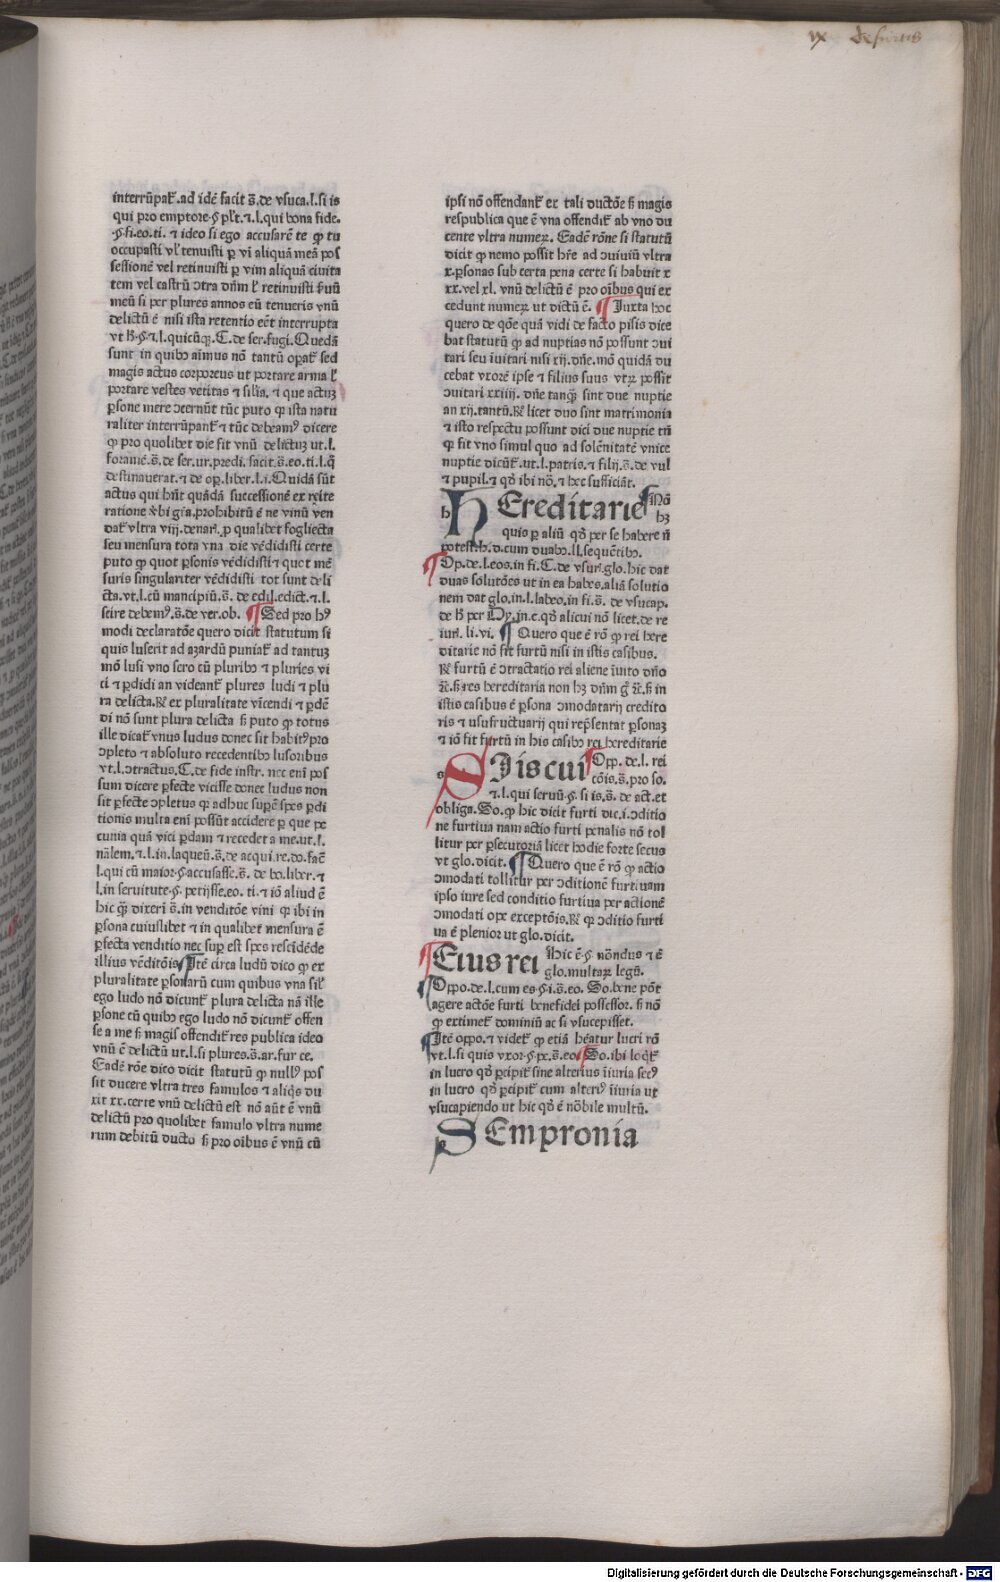 ıx de furtis
interrūpat᷑.ad idē facit s̄.de vsuca.l.si is
qui pro emptore.§ pl't.⁊.l.qui bona fide.
.§.fi.eo.ti. ⁊ ideo si ego accusarē te ꝙ tu
occupasti vl' tenuisti ꝑ vī aliquā meā pos
sessionē vel retinuisti ꝑ vim aliquā ciuita
tem vel castrū ↄtra dn̄m l' retinuisti ẜuū
meū si per plures annos eū tenueris vnū
delictū ē nisi ista retentio eēt interrupta
vt ħ.§.⁊.l.quicūqꝫ.C.de ser.fugi.Quedā
sunt in quibꝰ aīmus nō tantū oꝑat᷑ sed
magis actus corporeus ut portare arma l'
portare vestes vetitas ⁊ silīa. ⁊ que actuꝫ
ꝑsone mere ↄcernūt tūc puto ꝙ ista natu
raliter interrūpant᷑ ⁊ tūc debeamꝰ dicere
ꝙ pro quolibet die fit vnū delictuꝫ ut.l.
foramē.s̄.de ser.ur.predi.facit.s̄.eo.ti.l.q̄
destinauerat.⁊ de oꝑ.liber.l.i.Quidā sūt
actus qui hn̄t quādā successionē ex reite
ratione v̄bi gr̄a.prohibitū ē ne vinū ven
dat᷑ vltra viij.denar̄.ꝑ qualibet fogliecta
seu mensura tota vna die vēdidisti certe
puto ꝙ quot ꝑsonis vēdidisti ⁊ quot mē
suris singulariter vēdidisti tot sunt deli
cta.vt.l.cū mancipiū.s̄.de edil.edict.⁊.l.
scire debemꝰ.s̄.de ver.ob. ¶ Sed pro hꝰ
modi declaratōe quero dicit statutum si
quis luserit ad aȥardū puniat᷑ ad tantuꝫ
mō lusi vno sero cū pluribꝰ ⁊ pluries vi
ci ⁊ ꝑdidi an videant᷑ plures ludi ⁊ plu
ra delicta.℞ ex pluralitate vīcendi ⁊ ꝑdē
di nō sunt plura delicta ẜ puto ꝙ totus
ille dicat᷑ vnus ludus donec sit habitꝰ pro
ↄpleto ⁊ absoluto recedentibꝰ lusoribus
vt.l.ↄtractus.C.de fide instr. nec enī pos
sum dicere ꝑfecte vicisse donec ludus non
sit ꝑfecte ↄpletus ꝙ adhuc suꝑē spes ꝑdi
tionis multa enī possūt accidere ꝑ que pe
cunia quā vici ꝑdam ⁊ recedet a me.ut.l.
nālem.⁊.l.in.laqueū.s̄.de acqui.re.do.fac̄
l.qui cū maior.§ accusasse.s̄. de bo.liber.⁊
l.in seruitute.§ petijsse.eo. ti. ⁊ iō aliud ē
hic qꝫ dixerī s̄.in venditōe vini ꝙ ibi in
ꝑsona cuiuslibet ⁊ in qualibet mensura ē
ꝑfecta venditio nec suꝑ est spes rescidēde
illius vēditōis ¶ Itē circa ludū dico ꝙ ex
pluralitate ꝑsonarū cum quibus vna sil'
ego ludo nō dicunt᷑ plura delicta nā ille
ꝑsone cū quibꝰ ego ludo nō dicunt᷑ offen
se a me ẜ magis offendit᷑ res publica ideo
vnū ē delictū ut.l.si plures.s̄.ar.fur ce.
Eadē rōe dico dicit statutū ꝙ nullꝰ pos
sit ducere vltra tres famulos ⁊ aliqs du
xit xx.certe vnū delictū est nō aūt ē vnū
delictū pro quolibet famulo vltra nume
rum debitū ducto ẜ pro oībus ē vnū cū
ipsi nō offendant᷑ ex tali ductōe ẜ magis
respublica que ē vna offendit᷑ ab vno du
cente vltra numeꝝ. Eadē rōne si statutū
dicit ꝙ nemo possit hr̄e ad ↄuiuiū vltra
x.ꝑsonas sub certa pena certe si habuit x
xx.vel xl. vnū delictū ē pro oībus qui ex
cedunt numeꝝ ut dictū ē. ¶ Iuxta hoc
quero de qōe quā vidi de facto pisis dice
bat statutū ꝙ ad nuptias nō possunt ↄui
tari seu īuitari nisi xij.dn̄e.mō quidā du
cebat vxorē ipse ⁊ filius suus vtꝝ possit
ↄuitari xxiiij. dn̄e tanqꝫ sint due nuptie
an xij.tantū.℞ licet duo sint matrimonia
⁊ isto respectu possunt dici due nuptie tn̄
ꝙ fit vno simul quo ad solēnitatē vnice
nuptie dicūt᷑.ut.l.patris.⁊ filij.s̄.de vul
⁊ pupil.⁊ qꝺ ibi nō.⁊ hec sufficiāt.
h HEreditarie ¶ Nō
hꝫ
quis ꝑ aliū qꝺ per se habere n̄
potest.h.d.cum duabꝰ.ll.sequētibꝰ.
¶ Op.de.l.eos.in fi.C.de vsur̄.glo.hic dat
duas solutōes ut in ea habes.aliā solutio
nem dat glo.in.l.labeo.in fi.s̄. de vsucap.
de ħ per Dy.in.c.qꝺ alicui nō licet.de re
iur̄. li.vi. ¶ Quero que ē rō ꝙ rei here
ditarie nō fit furtū nisi in istis casibus.
℞ furtū ē ↄtractatio rei aliene īuito dn̄o
⁊c̄.ẜ res hereditaria non hꝫ dn̄m g̊ ⁊c̄.ẜ in
istis casibus ē ꝑsona ↄmodatarij credito
ris ⁊ usufructuarij qui rep̄sentat ꝑsonaꝫ
⁊ iō fit furtū in his casibꝰ rei hereditarie
s SIis cui ¶ Opp. de.l. rei
cōis.s̄.pro so.
⁊.l.qui seruū.§.si is.s̄. de act.et
obliga.So.ꝙ hic dicit furti dic.i.ↄditio
ne furtiua nam actio furti penalis nō tol
litur per ꝑsecutoriā licet hodie forte secus
vt glo.dicit. ¶ Quero que ē rō ꝙ actio
ↄmodati tollitur per ↄditionē furtiuam
ipso iure sed conditio furtiua per actionē
ↄmodati ope exceptōis.℞ ꝙ ↄditio furti
ua ē plenior ut glo.dicit.
¶ Eius rei Hic ē.§ nōndus ⁊ ē
glo.multaꝝ legū.
¶ Oppo.de.l.cum es.§i.s̄.eo. So.bene pōt
agere actōe furti benefidei possessor. ẜ nō
ꝙ extimet᷑ dominiū ac si vsucepisset.
¶ Itē oppo.⁊ videt᷑ ꝙ etiā hēatur lucri rō
vt.l.si quis vxor.§ ꝑe.s̄.eo ¶ So.ibi loqt᷑
in lucro qꝺ ꝑcipit᷑ sine alterius īiuria secꝰ
in lucro qꝺ ꝑcipit᷑ cum alterꝰ īiuria ut
vsucapiendo ut hic qꝺ ē nōbile multū.
s SEmpronia
Digitalisierung gefördert durch die Deutsche Forschungsgemeinschaft - DFG